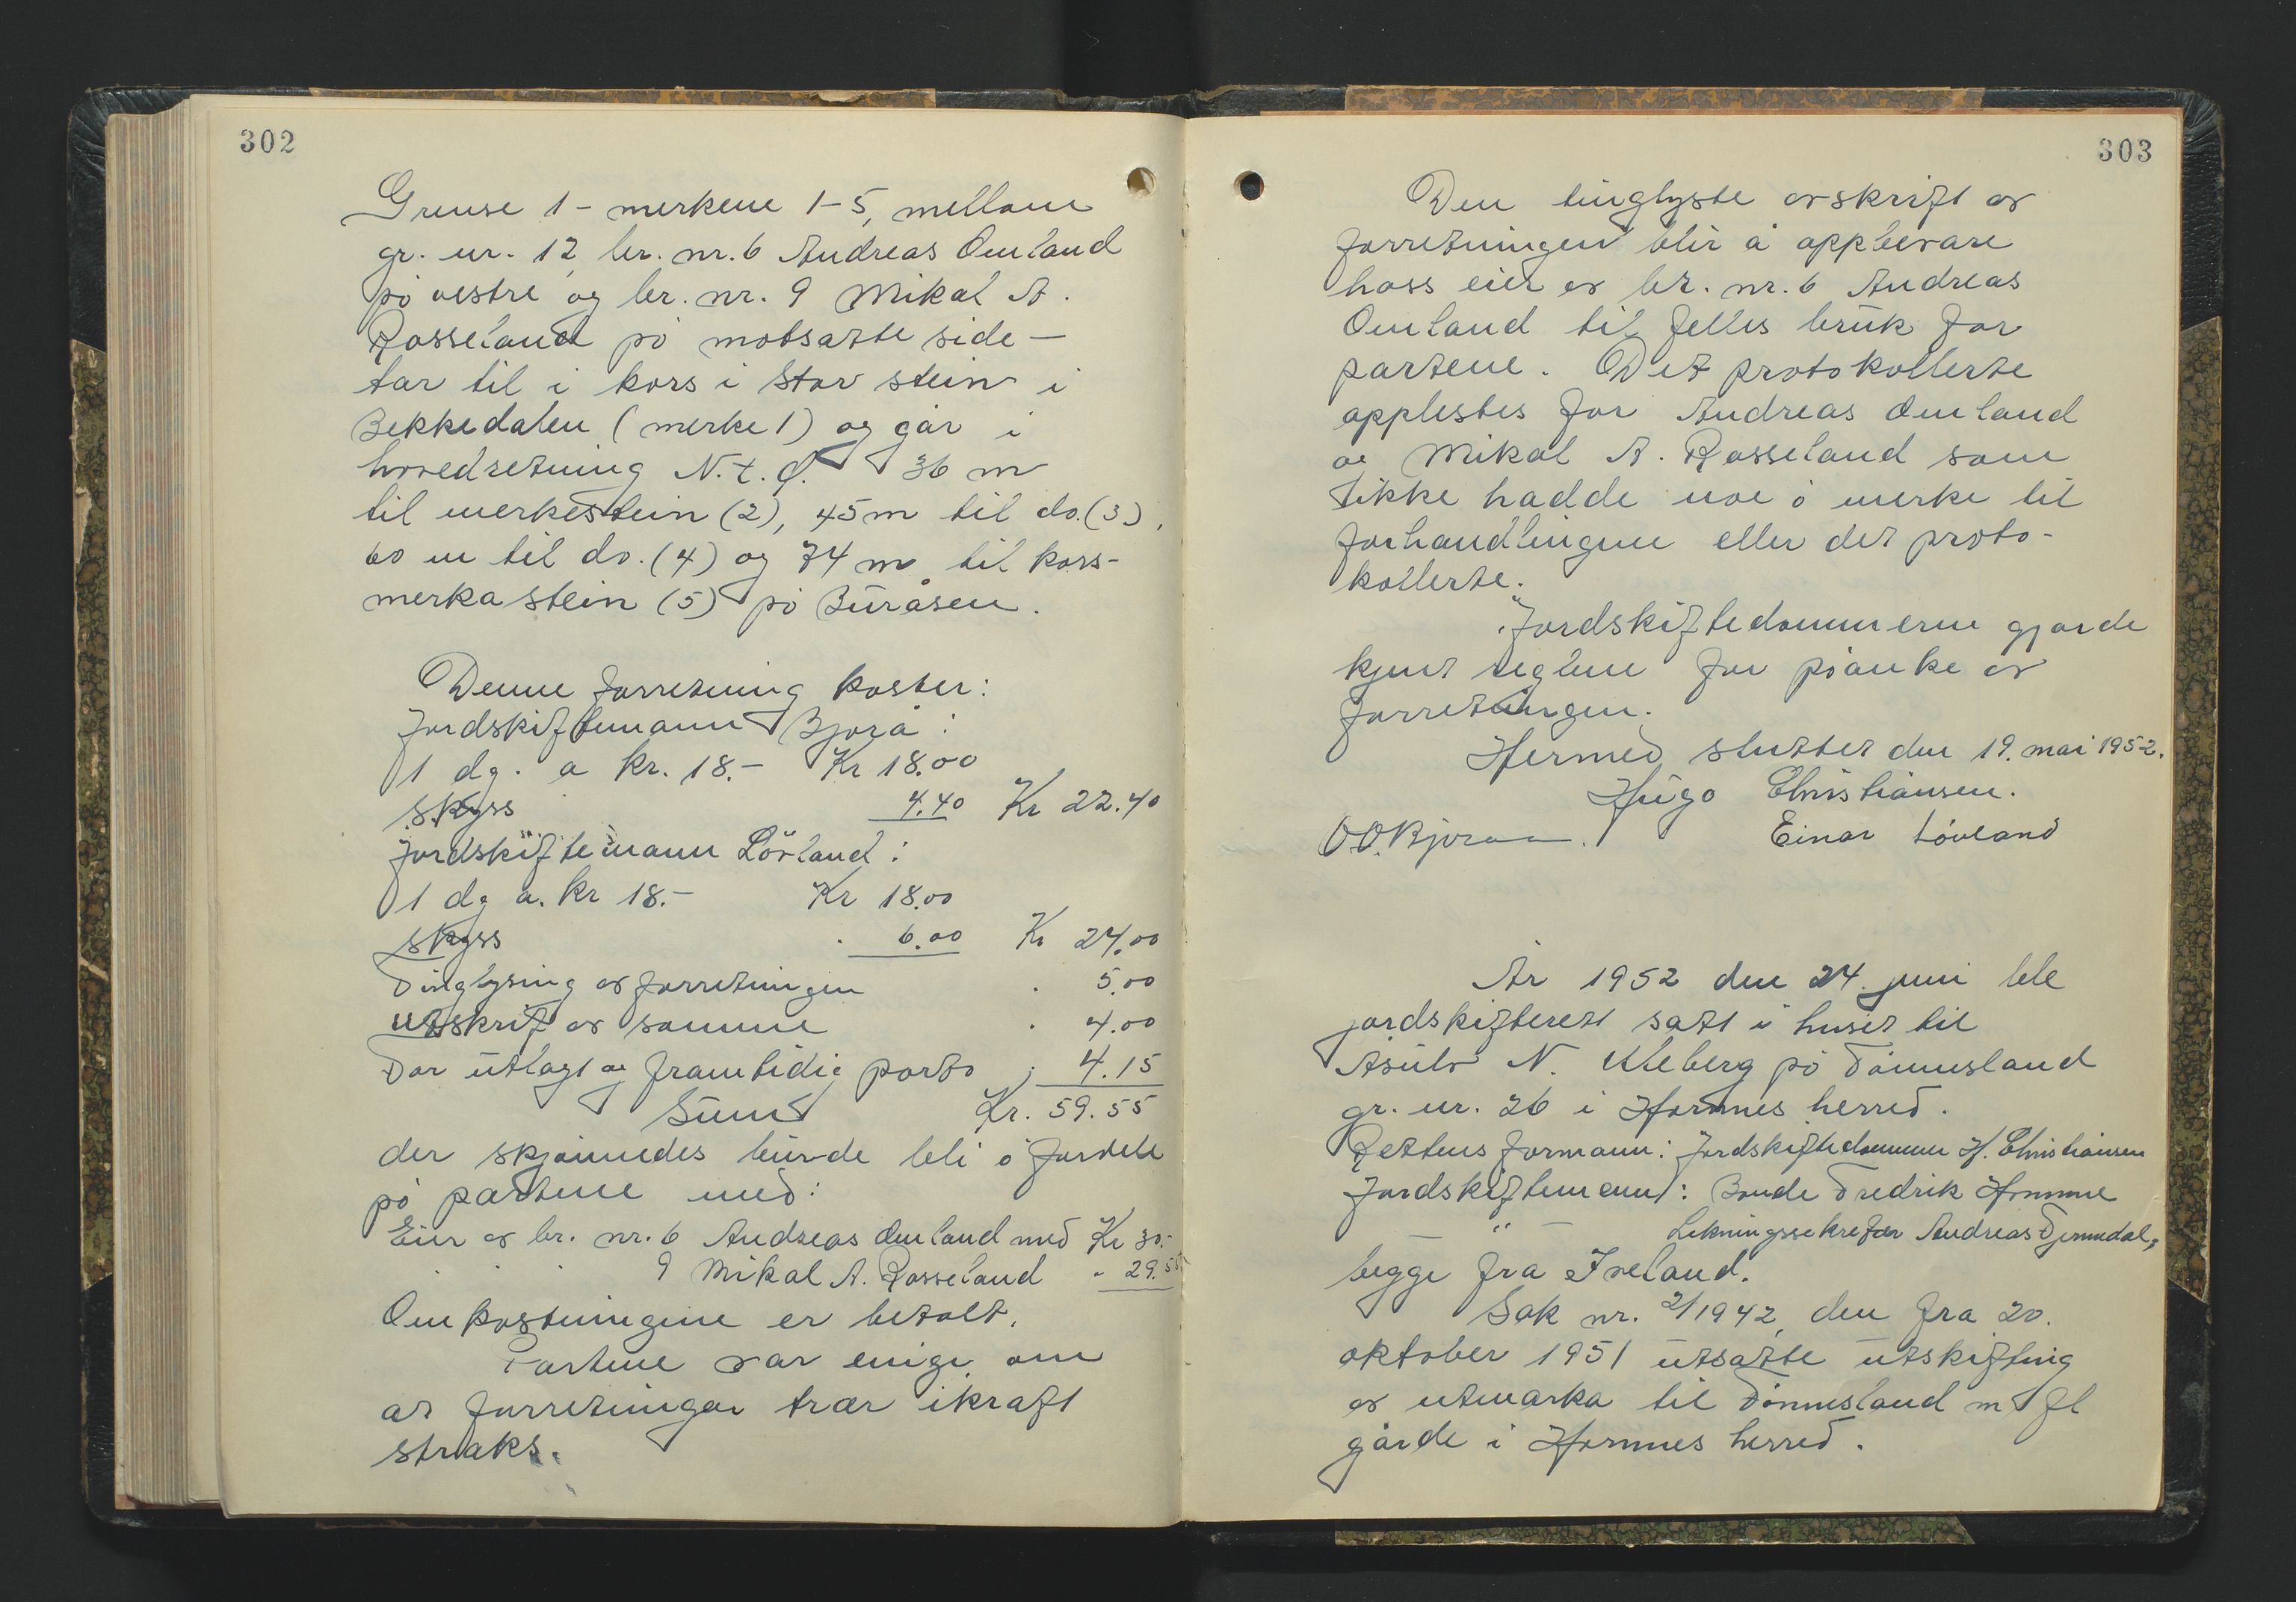 302
Grense 1 - merkene 1-5, mellom
gr. nr. 12, br. nr. 6 Andreas Omland
på vestre og br. nr. 9 Mikal A.
Rosseland på motsatte side -
tar til i kors i stor stein i
Bekkedalen (merke 1) og går i
hovedretning N.t.Ø. 36 m
til merkestein (2), 45 m til do. (3),
60 m til do. (4) og 74 m til kors-
merka stein (5) på Buråsen.
Denne forretning koster:
Jordskiftemann Bjorå:
1 dg. a kr. 18.- Kr 18.00
Skyss 4.40 Kr 22.40
Jordskiftemann Lövland:
1 dg a. kr 18.- Kr 18.00
skyss . 6.00 Kr 24.00
Tinglysing av forretningen . 5.00
Utskrift av samme . 4.00
For utlagt og framtidig porto . 4.15
Sum Kr. 59.55
det skjønnedes burde bli å fordele
på partene med:
Eier av br. nr. 6 Andreas Omland med Kr 30.-
. . . 9 Mikal A. Rosseland - 29.55
Omkostningene er betalt.
Partene var enige om
at forretningen trær ikraft
straks.
303
Den tinglyste avskrift av
forretningen blir å oppbevare
hoss eier av br. nr. 6 Andreas
Omland til felles bruk for
partene. Det protokollerte
opplestes for Andreas Omland
og Mikal A. Rosseland som
ikke hadde noe å merke til
forhandlingene eller det proto-
kollerte.
Jordskiftedommeren gjorde
kjent reglene for påanke av
forretningen.
Hermed sluttet den 19. mai 1952.
Hugo Christiansen.
O.O. Bjoraa. Einar Lövland
År 1952 den 24. juni ble
jordskifterett satt i huset til
Asulv N. Uleberg på Tönnesland
gr. nr. 26 i Hornnes herred.
Rettens formann: Jordskiftedommer H. Christiansen
Jordskiftemenn: Bonde Fredrik Homme
" - Likningssekretær Andreas Tjernedal,
begge fra Iveland.
Sak nr. 2/1942, den fra 20.
oktober 1951 utsatte utskifting
av utmarka til Tönnesland m fl
gårde i Hornnes herred.